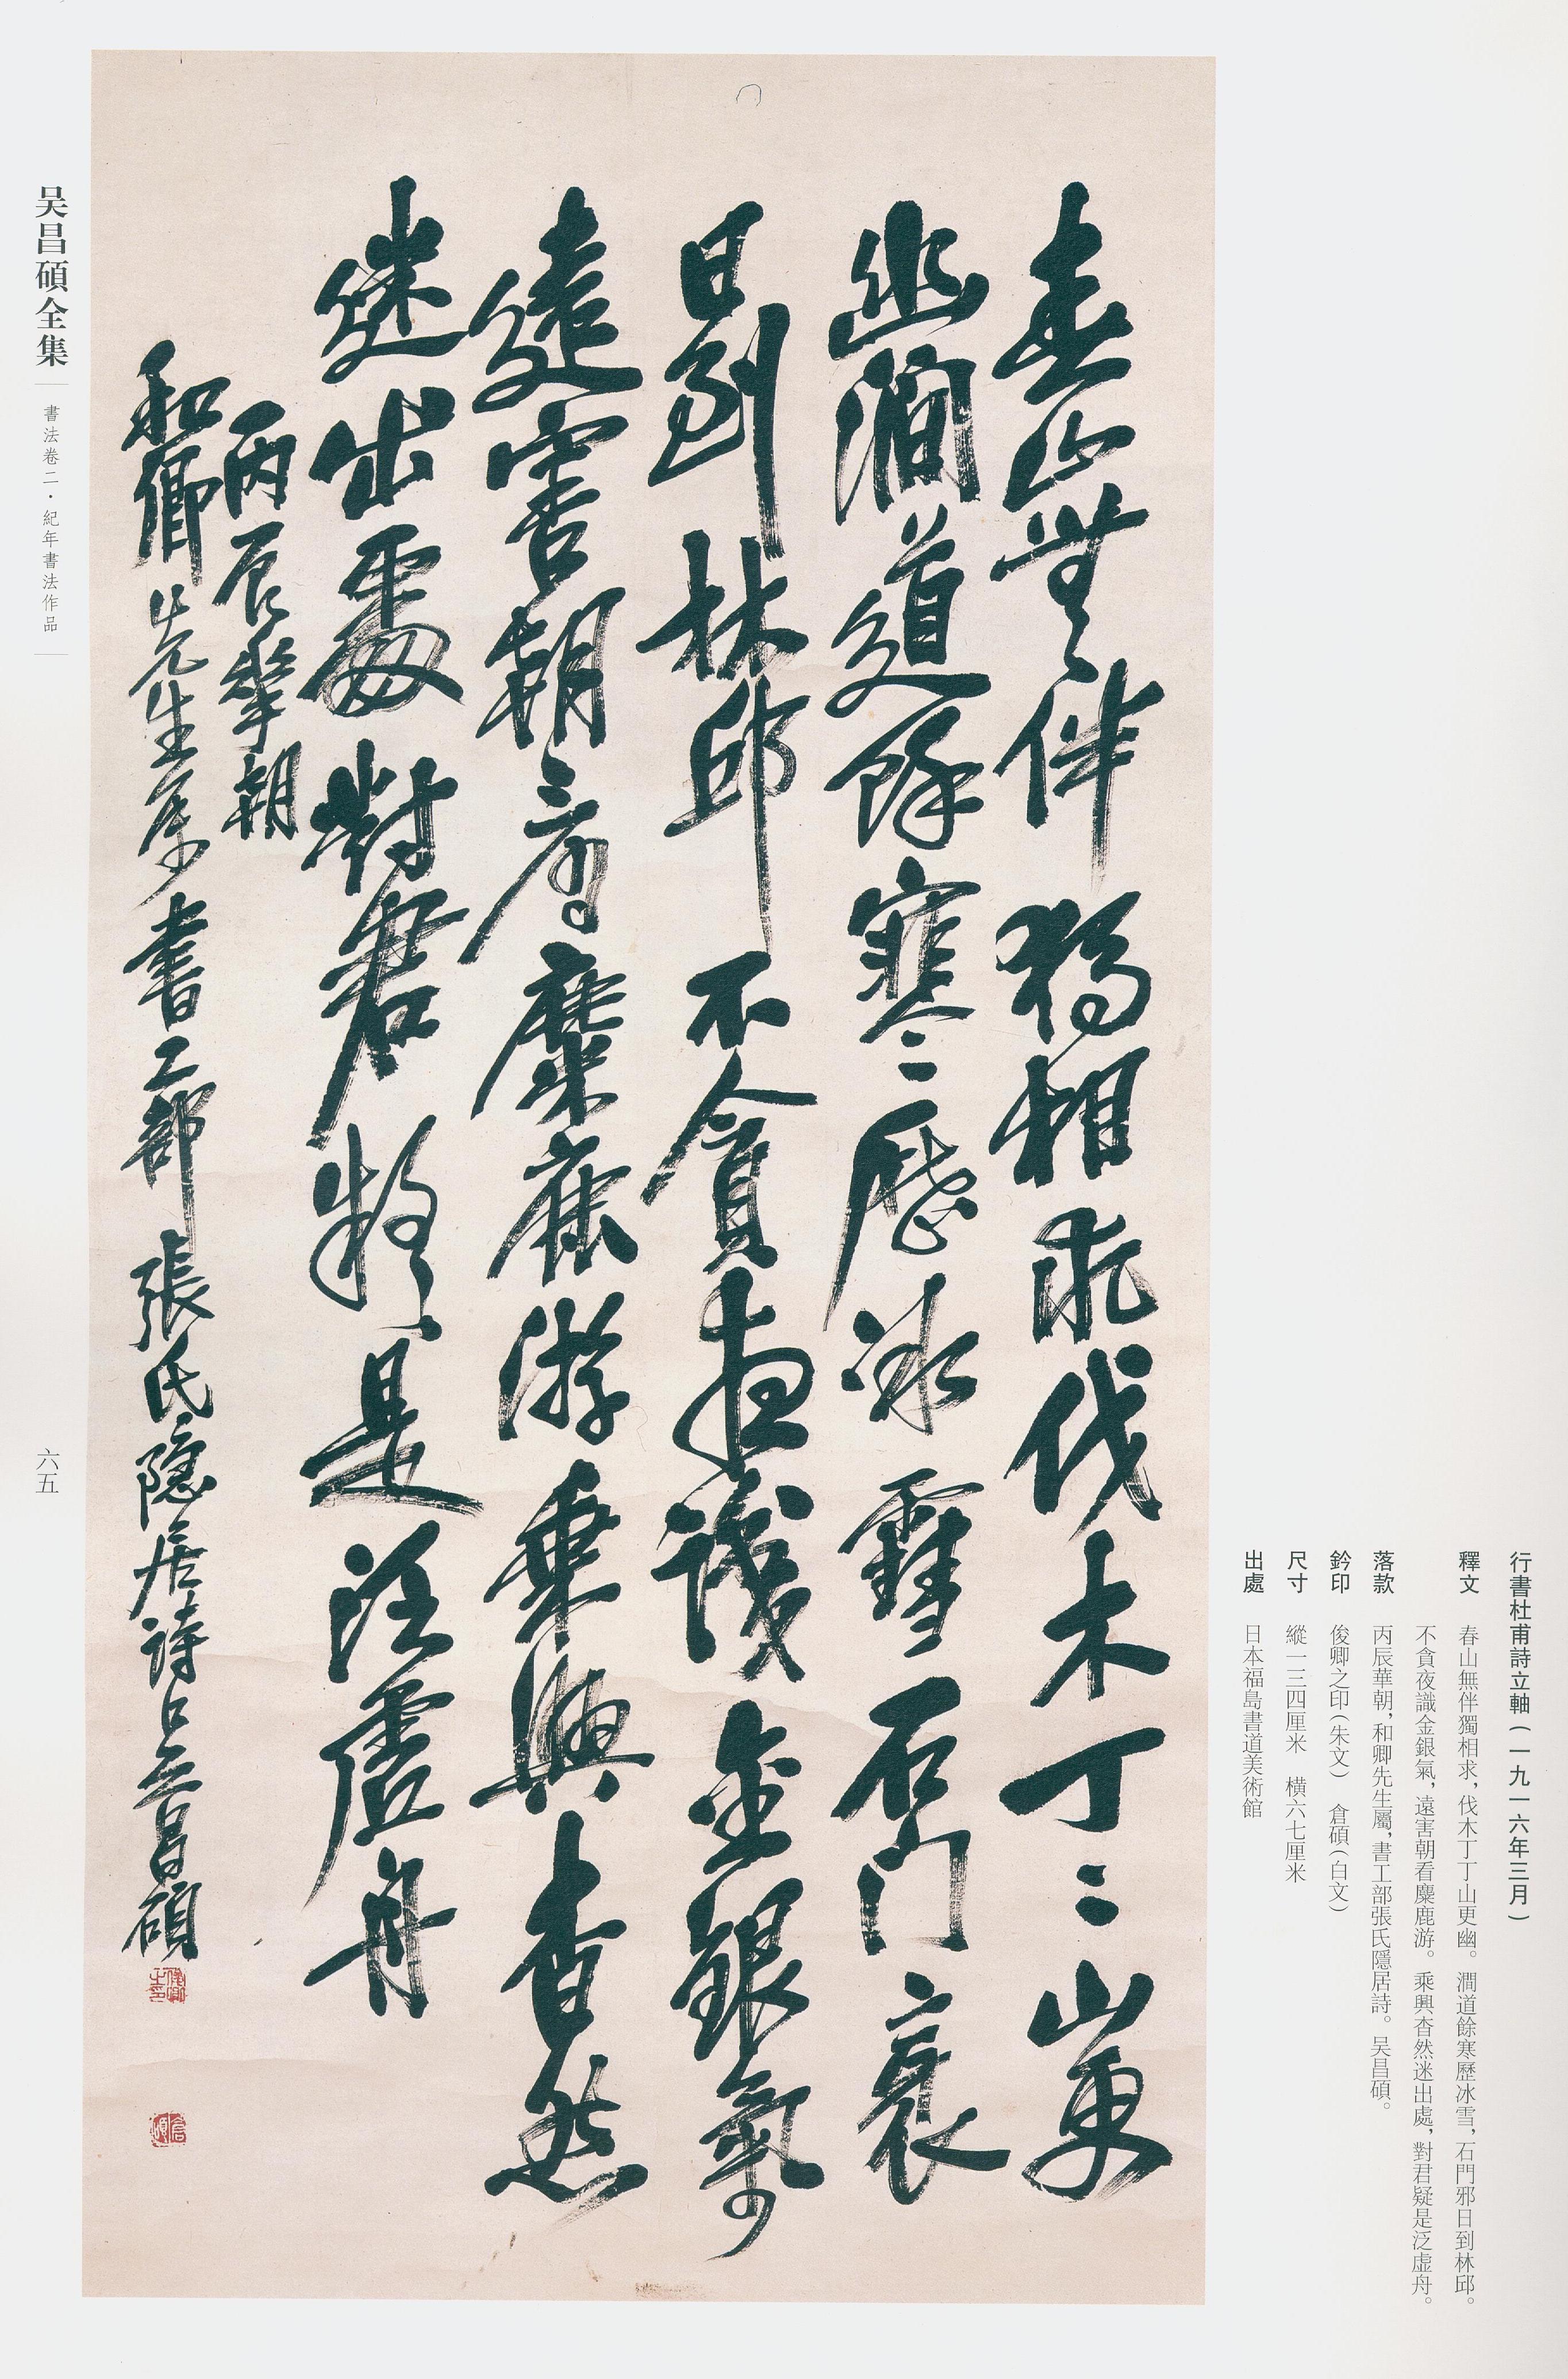 行書杜甫詩立軸（一九一六年三月）
釋文　春山無伴獨相求，伐木丁丁山更幽。澗道餘寒歷冰雪，石門邪日到林邱。
不貪夜識金銀氣，遠害朝看麋鹿游。乘興杳然迷出處，對君疑是泛虛舟。
落款　丙辰華朝，和卿先生屬，書工部張氏隱居詩。吴昌碩。
鈐印　俊卿之印（朱文）　倉碩（白文）
尺寸　縱一三四厘米　橫六七厘米
出處　日本福島書道美術館
春山無伴獨相求伐木丁〻山更
幽澗道餘寒〻歷冰雪石門衺
日到林邱不貪夜識金銀氣
遠害朝看麋鹿游乘興杳然
迷出處對君疑是泛虛舟
丙辰華朝
和卿先生屬書工部張氏隱居詩吴昌碩
俊卿之印
倉碩
吴昌碩全集
書法卷二·紀年書法作品
六五